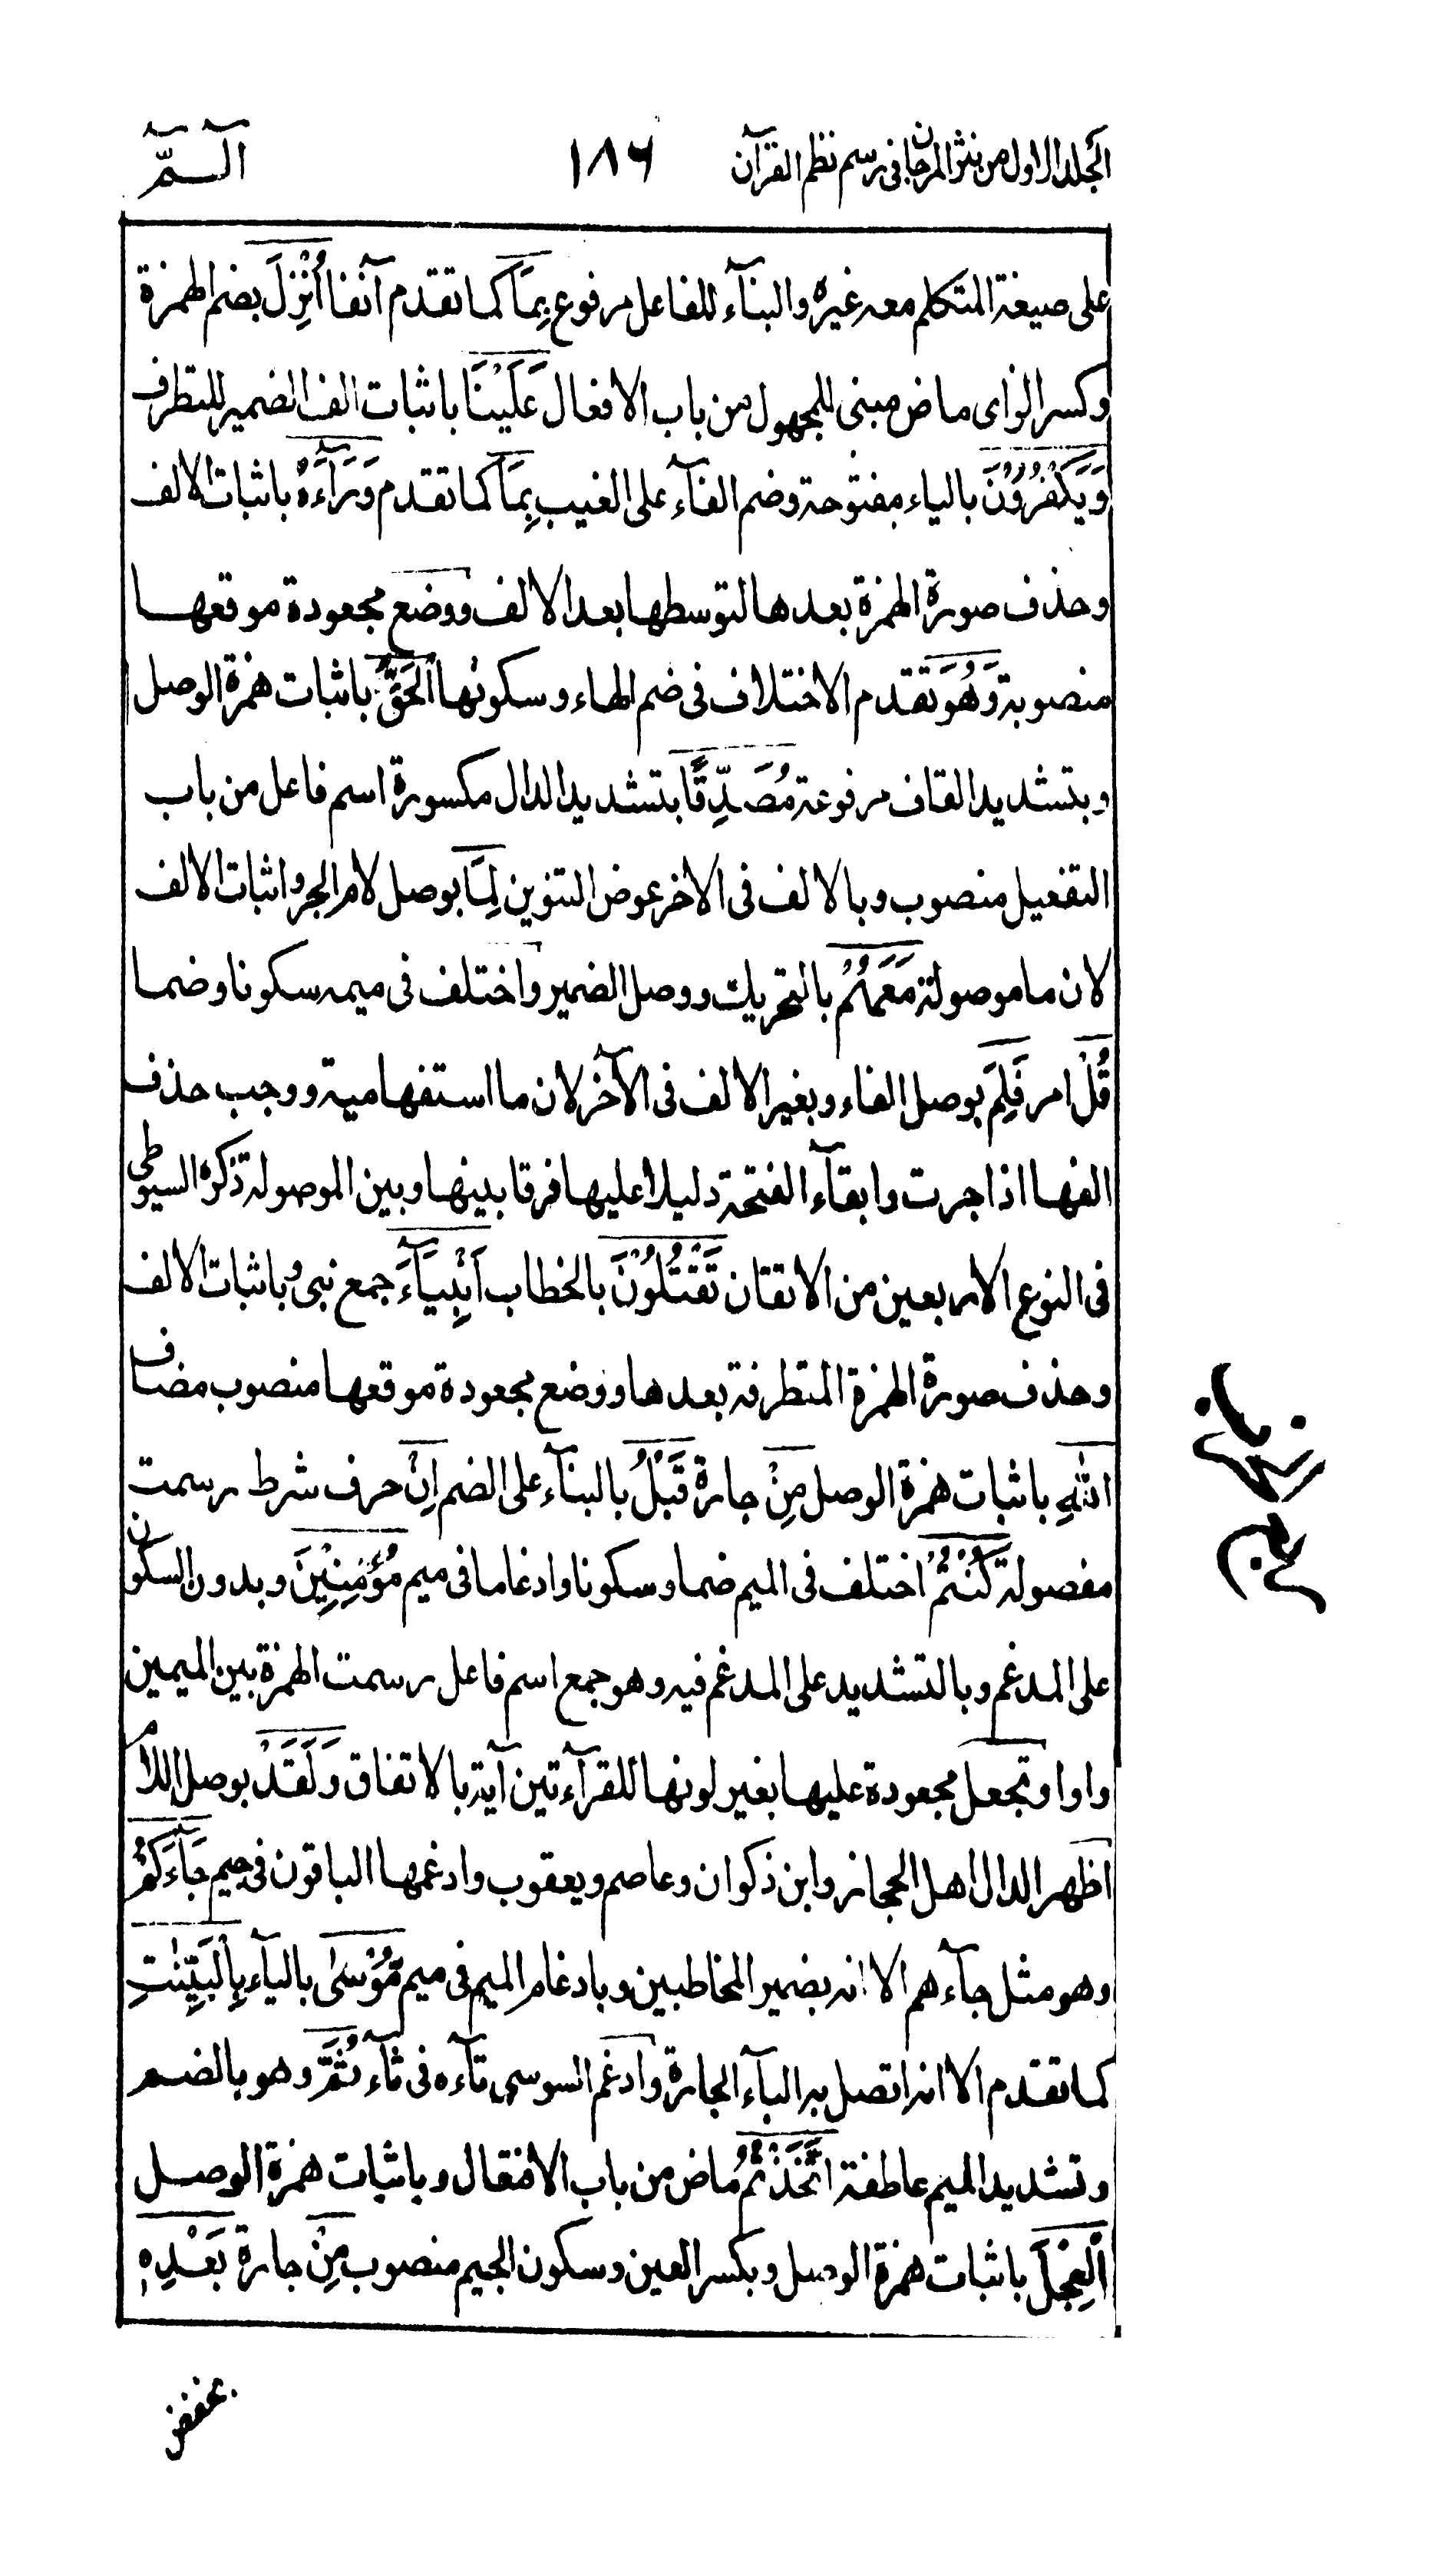 المجلد الاول من نثر المرجان فى رسم نظم القرآن ١٨٦ آلٓـمّٓ
على صيغة المتكلم معه غيره والبنآء للفاعل مرفوع بِمَآ كما تقدم آنفا اُنْزِلَ بضم الهمزة
وكسر الزاى ماض مبنى للمجهول من باب الافعال عَلَيْنَا باثبات الف الضمير للتطرف
وَيَكْفُرُوْنَ بالياء مفتوحة وضم الفآء على الغيب بِمَا كما تقدم وَرَآءَهٗ باثبات الالف
وحذف صورة الهمزة بعدها لتوسطها بعد الالف ووضع مجعودة موقعها
منصوبة وَهُوَ تقدم الاختلاف فى ضم الهاء وسكونها الْحَقُّ باثبات همزة الوصل
وبتشديد القاف مرفوعة مُصَدِّقًا بتشديد الدال مكسورة اسم فاعل من باب
التفعيل منصوب وبالالف فى الاخر عوض التنوين لِمَا بوصل لام الجر واثبات الالف
لان ما موصولة مَعَهُمْ بالتحريك ووصل الضمير واختلف فى ميمه سكونا وضما
قُلْ امر فَلِمَ بوصل الفاء وبغير الالف فى الآخر لان ما استفهامية ووجب حذف
الفها اذا جرت وابقآء الفتحة دليلا عليها فرقا بينها وبين الموصولة ذكره السيوطى
فى النوع الاربعين من الاتقان تَقْتُلُوْنَ بالخطاب اَنْۢبِيَآءَ جمع نبى وباثبات الالف
وحذف صورة الهمزة المتطرفة بعدها ووضع مجعودة موقعها منصوب مضاف
اللّٰهِ باثبات همزة الوصل مِنْ جارة قَبْلُ بالبنآء على الضم اِنْ حرف شرط رسمت
مفصولة كُنْتُمْ اختلف فى الميم ضما وسكونا وادغاما فى ميم مُؤْمِنِيْنَ وبدون السكون
على المدغم وبالتشديد على المدغم فيه وهو جمع اسم فاعل رسمت الهمزة بين الميمين
واوا وتجعل مجعودة عليها بغير لونها للقرآءتين آية بالاتفاق وَلَقَدْ بوصل اللام
اظهر الدال اهل الحجاز وابن ذكوان وعاصم ويعقوب وادغمها الباقون فى جيم جَآءَكُمْ
وهو مثل جآءهم الا انه بضمير المخاطبين وبادغام الميم فى ميم مُّوْسٰى بالياء بِالْبَيِّنٰتِ
كما تقدم الا انه اتصل به البآء الجارة وادغم السوسى تآءه فى ثآء ثُمَّ وهو بالضم
وتشديد الميم عاطفة اتَّخَذْتُمُ ماض من باب الافتعال وباثبات همزة الوصل
الْعِجْلَ باثبات همزة الوصل وبكسر العين وسكون الجيم منصوب مِنْ جارة بَعْدِهٖ
بخفض